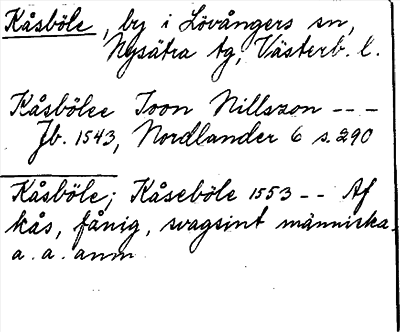 Kåsböle, by i Lövångers sn,
Nysätra tg, Västerb. l.
Kåsbölee Joon Nillszon - - -
Jb. 1543, Nordlander 6 s. 290
Kåsböle; Kåseböle 1553 - - Af
kås, fånig, svagsint människa.
a. a. anm